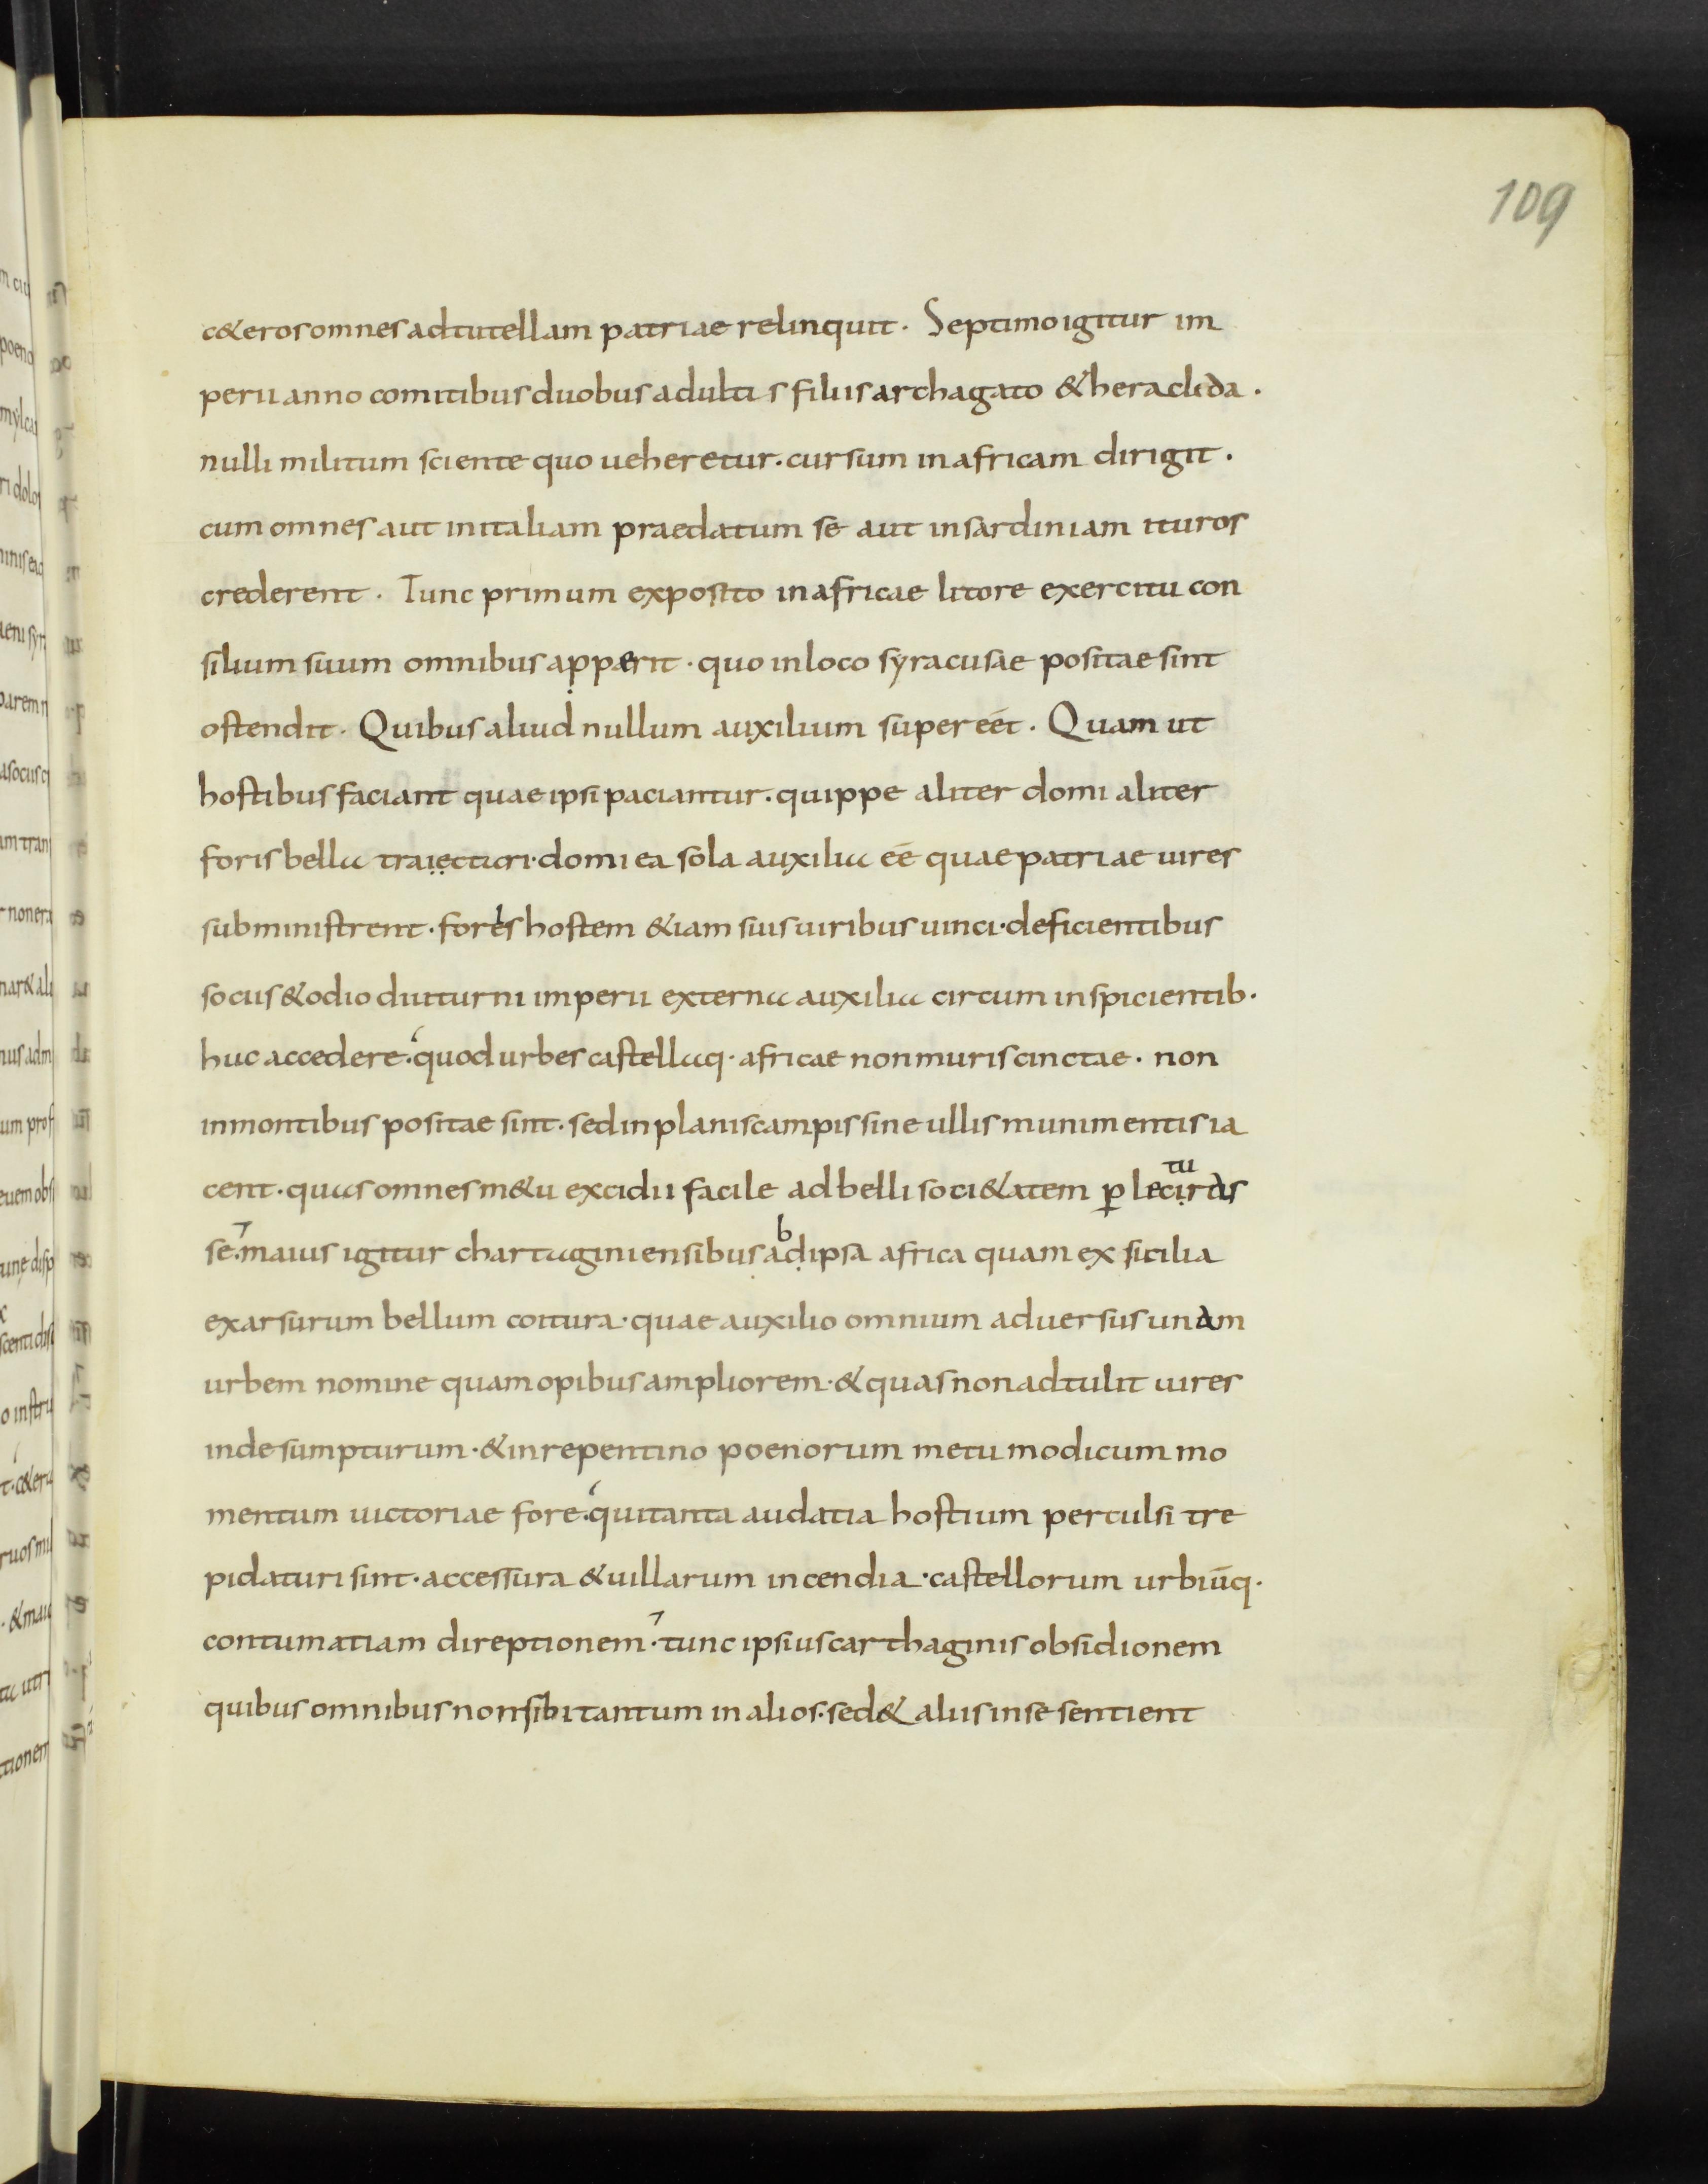 109
c&eros omnes ad tutellam patriae relinquit. Septimo igitur im
perii anno comitibus duobus adultis filiis archagato & heraclida.
nulli militum sciente quo ueheretur. cursum in africam dirigit.
cum omnes aut in italiam praedatum se aut in sardiniam ituros
crederent. Tunc primum exposito in africae litore exercitu con
silium suum omnibus apperit. quo in loco syracusae positae sint
ostendit. Quibus aliud nullum auxilium supereēt. Quam ut
hostibus faciant quae ipsi paciantur. quippe aliter domi aliter
foris bella traiectari. domi ea sola auxilia eē quae patriae uires
subministrent. foris hostem &iam suis uiribus uinci. deficientibus
sociis & odio diuturni imperii externa auxilia circum inspicientib.
huc accedere. quod urbes castellaq. africae non muris cinctae. non
in montibus positae sint. sed in planis campis sine ullis munimentis ia
cent. quas omnes m&u excidii facile ad belli soci&atem ꝑlecituras
se. maius igitur chartaginiensibus abdipsa africa quam ex sicilia
exarsurum bellum coitura. quae auxilio omnium aduersus unam
urbem nomine quam opibus ampliorem. & quas non adtulit uires
inde sumpturum. & in repentino poenorum metu modicum mo
mentum uictoriae fore. qui tanta audatia hostium perculsi tre
pidaturi sint. accessura & uillarum incendia. castellorum urbiūq.
contumatiam direptionem. tunc ipsius carthaginis obsidionem
quibus omnibus non sibi tantum in alios. sed & aliis in se sentient